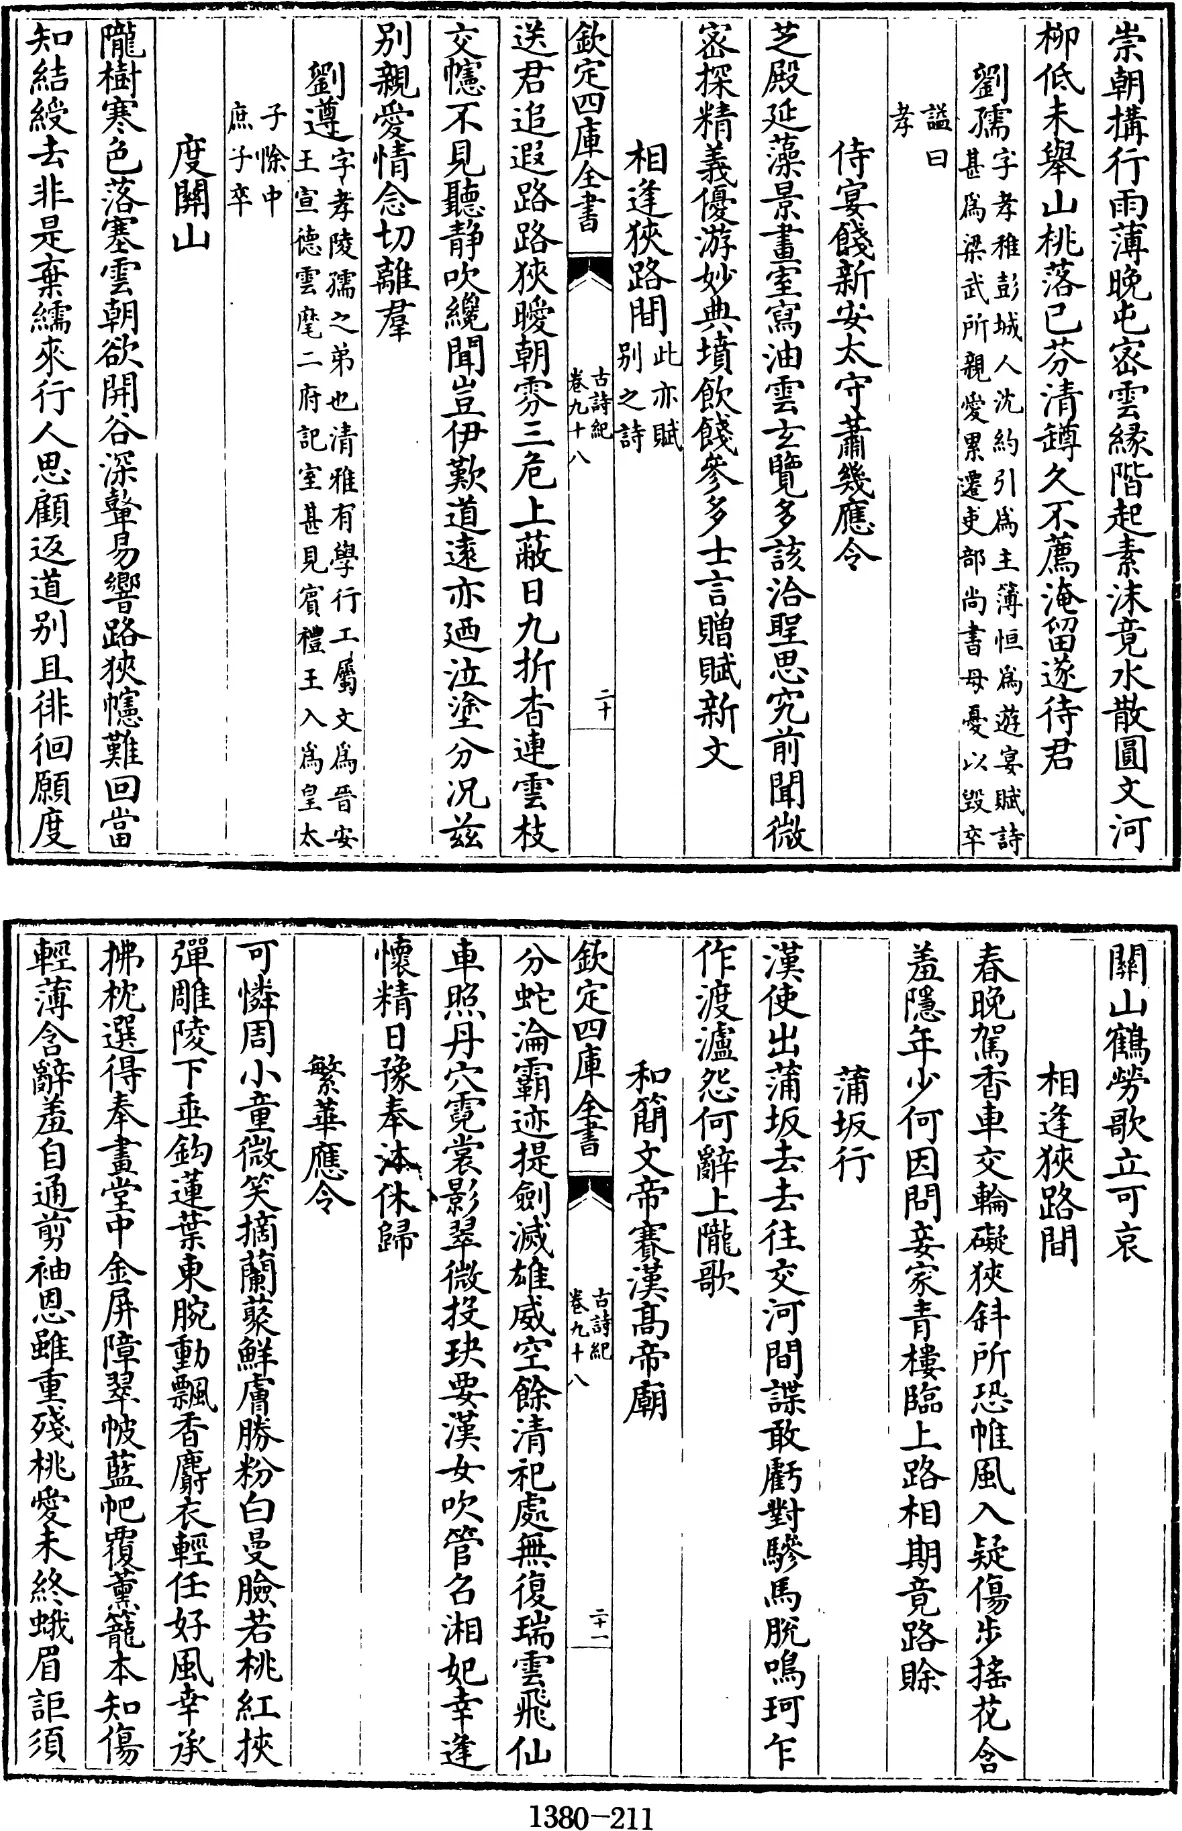 崇朝搆行雨薄晚屯密雲縁階起素沫竟水散圓文河
柳低未舉山桃落已芬清罇久不薦淹留遂待君
劉孺字孝稚彭城人沈約引爲主簿恒爲遊宴賦詩
甚爲梁武所親愛累遷吏部尚書母憂以毀卒
謚曰
孝
侍宴餞新安太守蕭幾應令
芝殿延藻景畫室寫油雲玄覽多該洽聖思究前聞微
密探精義優游妙典墳飲餞參多士言贈賦新文
相逢狹路間此亦賦
别之詩
欽定四庫全書
古詩紀
卷九十八
二十
送君追遐路路狹曖朝雰三危上蔽日九折杳連雲枝
交幰不見聽静吹纔聞豈伊歎道遠亦廼泣塗分况兹
别親愛情念切離羣
劉遵字孝陵孺之弟也清雅有學行工屬文爲晋安
王宣德雲麾二府記室甚見賓禮王入爲皇太
子除中
庶子卒
度關山
隴樹寒色落塞雲朝欲開谷深鼙易響路狹幰難回當
知結綬去非是棄繻來行人思顧返道别且徘徊願度
關山鶴勞歌立可哀
相逢狹路間
春晚駕香車交輪礙狹斜所恐帷風入疑傷步揺花含
羞隱年少何因問妾家青樓臨上路相期竟路賒
蒲坂行
漢使出蒲坂去去往交河間諜敢虧對驂馬脱鳴珂乍
作渡瀘怨何辭上隴歌
和簡文帝賽漢髙帝廟
欽定四庫全書
古詩紀
卷九十八
二十一
分蛇淪霸迹提劍滅雄威空餘清祀處無復瑞雲飛仙
車照丹穴霓裳影翠微投玦要漢女吹管召湘妃幸逢
懷精日豫奉沐休歸
繁華應令
可憐周小童微笑摘蘭藂鮮膚勝粉白曼臉若桃紅挾
彈雕陵下垂鈎蓮葉東腕動飄香麝衣輕任好風幸承
拂枕選得奉畫堂中金屏障翠帔藍帊覆薫籠本知傷
輕薄含辭羞自通剪袖恩雖重殘桃愛未終蛾眉詎須
1380-211